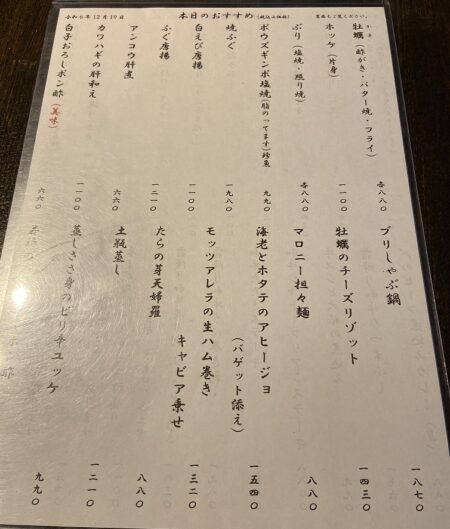 令和6年12月19日
本日のおすすめ(税込み価格)
裏面もご覧ください。
かき
牡蠣(酢がき・バター焼・フライ) 各八八〇
ホッケ(片身) 一一〇〇
ぶり(塩焼・照り焼) 各八八〇
ボウズギンポ塩焼(脂のってます)珍魚 九九〇
焼ふぐ 一九八〇
白えび唐揚
ふぐ唐揚 一二一〇
アンコウ肝煮 六六〇
カワハギの肝和え 一一〇〇
白子おろしポン酢(美味) 六六〇
ブリしゃぶ鍋 一八七〇
牡蠣のチーズリゾット 一四三〇
マロニー担々麺 八八〇
海老とホタテのアヒージョ
(バゲット添え) 一五四〇
モッツアレラの生ハム巻き
キャビア乗せ 一三二〇
たらの芽天婦羅 八八〇
土瓶蒸し 一二一〇
蒸しささ身のピリ辛ユッケ 九九〇